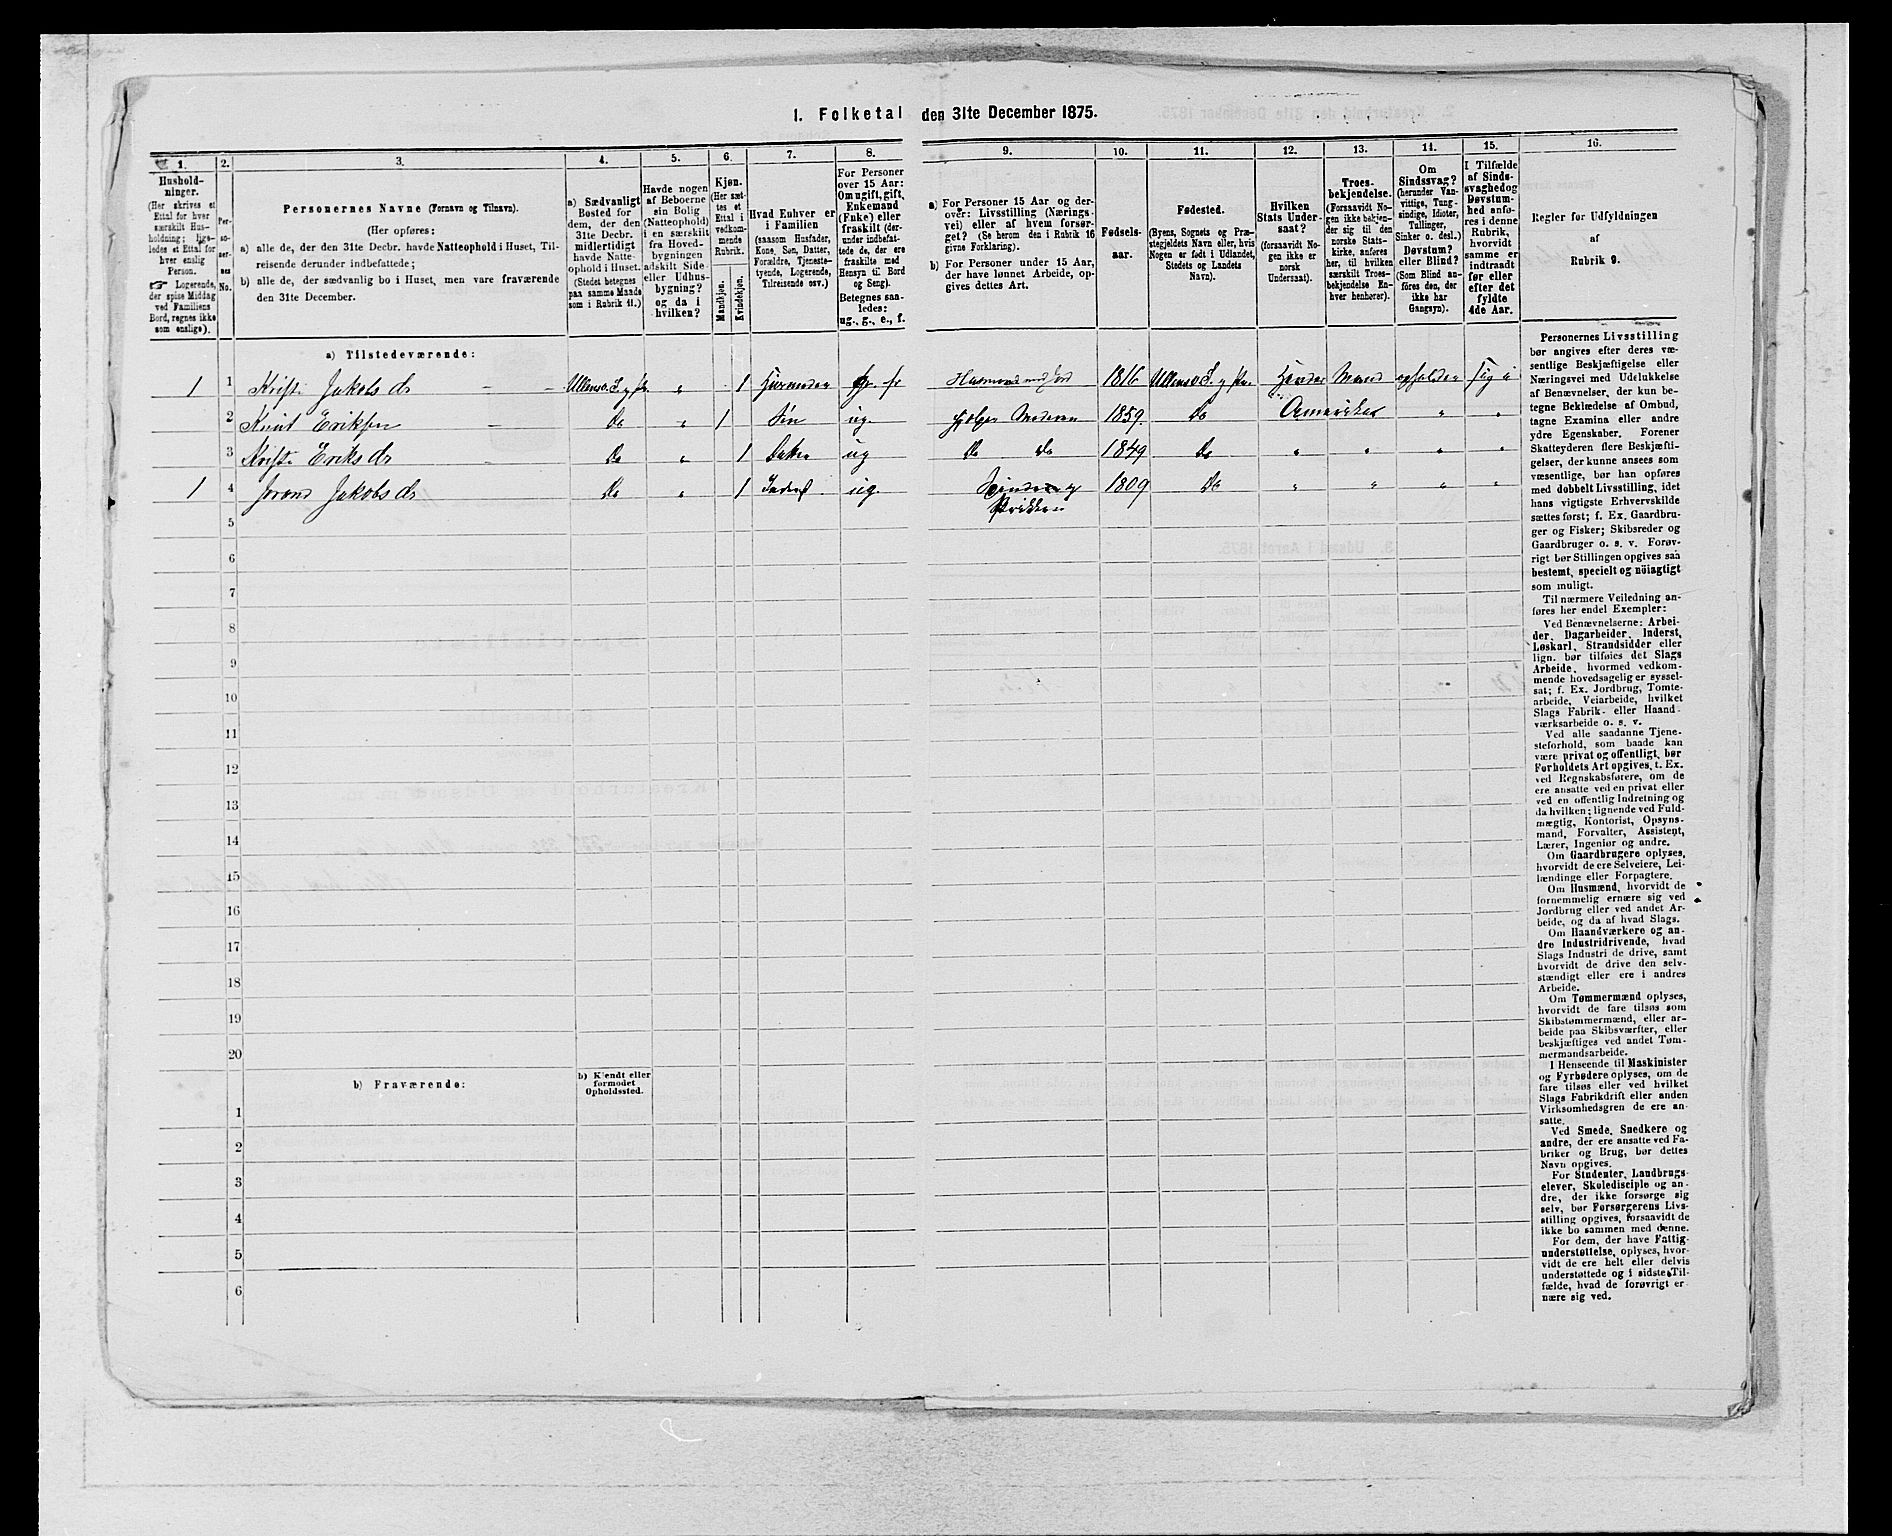 1. Folketal den 31te December 1875.
1.
Hushold-
ninger.
(Her skrives et
Ettal for hver
særskilt Hus-
holdning; lige-
ledes et Ettal for
hver enslig
Person.
☞ Logerende,
der spise Middag
ved Familiens
Bord, regnes ikke
som enslige).
2.
Per-
so-
ner-
nes
No.
3.
Personernes Navne (Fornavn og Tilnavn).
(Her opføres:
a) alle de, der den 31te Decbr. havde Natteophold i Huset, Til-
reisende derunder indbefattede;
b) alle de, der sædvanlig bo i Huset, men vare fraværende
den 31te December.
4.
a) Sædvanligt
Bosted for
dem, der den
31te Decbr.
midlertidigt
havde Natte-
ophold i Huset.
(Stedet betegnes
paa samme Maade
som i Rubrik 11.)
5.
Havde nogen
af Beboerne
sin Bolig
(Natteophold)
i en særskilt
fra Hoved-
bygningen
adskilt Side-
eller Udhus-
bygning?
og da i
hvilken?
6.
Kjøn.
(Her sæt-
tes et
Ettal i
vedkom-
mende
Rubrik.
Mandkjøn.
Kvindekjøn.
7.
Hvad Enhver er
i Familien
(saasom Husfader,
Kone, Søn, Datter,
Forældre, Tjeneste-
tyende, Logerende,
Tilreisende osv.)
8.
For Personer
over 15 Aar:
Om ugift, gift,
Enkemand
(Enke) eller
fraskilt (der-
under indbefat-
tede de, der ere
fraskilte med
Hensyn til Bord
og Seng).
Betegnes saa-
ledes:
ug., g., e., f.
9.
a) For Personer 15 Aar og der-
over: Livsstilling (Nærings-
vei) eller af hvem forsør-
get? (Se herom den i Rubrik 16
givne Forklaring).
b) For Personer under 15 Aar,
der have lønnet Arbeide, op-
gives dettes Art.
10.
Fødsels-
aar.
11.
Fødested.
(Byens, Sognets og Præ-
stegjeldets Navn eller, hvis
Nogen er født i Udlandet,
Stedets og Landets
Navn).
12.
Hvilken
Stats Under-
saat?
(forsaavidt No-
gen ikke er
norsk
Undersaat).
13.
Troes-
bekjendelse.
(Forsaavidt No-
gen ikke bekjen-
der sig til den
norske Stats-
kirke, anføres
her, til hvilken
særskilt Troes-
bekjendelse En-
hver henhører).
14.
Om
Sindssvag?
(herunder Van-
vittige, Tung-
sindige, Idioter,
Tullinger,
Sinker o. desl.)
Døvstum?
eller Blind?
(Som Blind an-
føres den, der
ikke har
Gangsyn).
15.
I Tilfælde
af Sinds-
svaghed og
Døvstum-
hed anfø-
res i denne
Rubrik,
hvorvidt
samme er
indtraadt
før eller
efter det
fyldte
4de Aar.
16.
Regler for Udfyldningen
af
Rubrik 9.
a) Tilstedeværende:
1 1 Jakobsdr " 1 1816
2 Knut Eriksen Do " 1 Søn ug. 1859. Do Amerika " "
3 Eriksdr Do " 1 ug Do Do 1849 Do " " " "
1 4 Jakobsdr Do " 1 ug. 1809 Do " " " "
5
6
7
8
9
10
11
12
13
14
15
16
17
18
19
20
b) Fraværende:
b) Kjendt eller
formodet
Opholdssted.
1
2
3
4
5
6
Personernes Livsstilling
bør angives efter deres væ-
sentlige Beskjæftigelse eller
Næringsvei med Udelukkelse
af Benævnelser, der kun be-
tegne Beklædelse af Ombud,
tagne Examina eller andre
ydre Egenskaber. Forener
Skatteyderen flere Beskjæfti-
gelser, der kunne ansees som
væsentlige, bør han opføres
med dobbelt Livsstilling, idet
hans vigtigste Erhvervskilde
sættes først; f. Ex. Gaardbru-
ger og Fisker; Skibsreder og
Gaardbruger o. s. v. Forøv-
rigt bør Stillingen opgives saa
bestemt, specielt og nöiagtigt
som muligt.
Til nærmere Veiledning an-
føres her endel Exempler:
Ved Benævnelserne: Arbei-
der, Dagarbeider, Inderst,
Løskarl, Strandsidder eller
lign. bør tilføies det Slags
Arbeide, hvormed vedkom-
mende hovedsagelig er syssel-
sat; f. Ex. Jordbrug, Tomte-
arbeide, Veiarbeide, hvilket
Slags Fabrik- eller Haand-
værksarbeide o. s. v.
Ved alle saadanne Tjene-
steforhold, som baade kan
være privat og offentligt, bør
Forholdets Art opgives, t. Ex.
ved Regnskabsførere, om de
ere ansatte ved en privat eller
ved en offentlig Indretning og
da hvilken; lignende ved Fuld-
mægtig, Kontorist, Opsyns-
mand, Forvalter, Assistent,
Lærer, Ingeniør og andre.
Om Gaardbrugere oplyses,
hvorvidt de ere Selveiere, Lei-
lændinge eller Forpagtere.
Om Husmænd, hvorvidt de
fornemmelig ernære sig ved
Jordbrug eller ved andet Ar-
beide, og da af hvad Slags.
Om Haandværkere og an-
dre Industridrivende, hvad
Slags Industri de drive, samt
hvorvidt de drive den selv-
stændigt eller ere i andres
Arbeide.
Om Tømmermænd oplyses,
hvorvidt de fare tilsøs som
Skibstømmermænd, eller ar-
beide paa Skibsværfter, eller
beskjæftiges ved andet Tøm-
mermandsarbeide.
I Henseende til Maskinister
og Fyrbødere oplyses, om de
fare tilsøs eller ved hvilket
Slags Fabrikdrift eller anden
Virksomhedsgren de ere an-
satte.
Ved Smede, Snedkere og
andre, der ere ansatte ved Fa-
briker og Brug, bør dettes
Navn opgives.
For Studenter, Landbrugs-
elever, Skoledisciple og an-
dre, der ikke forsørge sig
selv, bør Forsørgerens Livs-
stilling opgives, forsaavidt de
ikke bo sammen med denne.
For dem, der have Fattig-
understøttelse, oplyses, hvor-
vidt de ere helt eller delvis
understøttede og i sidste Til-
fælde, hvad de forøvrigt er-
nære sig ved.